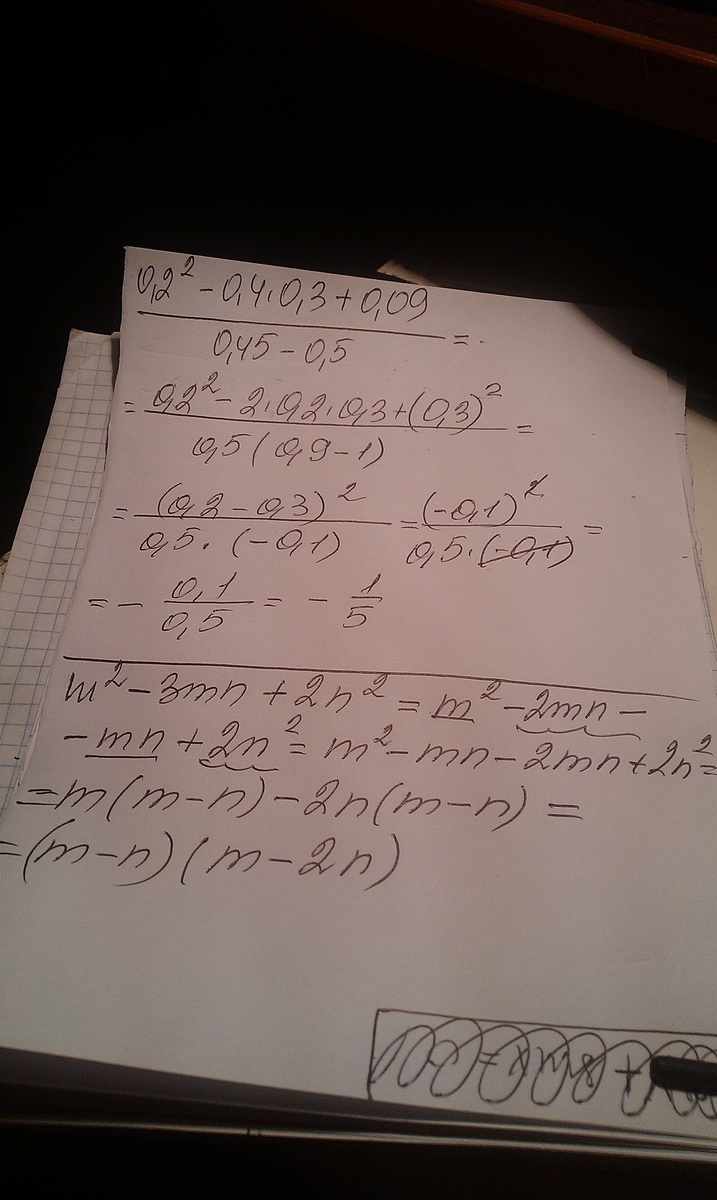 0,2² - 0,4·0,3 + 0,09
0,45 - 0,5 = ·
= 0,2² - 2·0,2·0,3 + (0,3)² =
0,5 (0,9 - 1)
= (0,2 - 0,3)² = (-0,1)² =
0,5 · (-0,1) 0,5 · (-0,1)
= - 0,1 = - 1
0,5 5
m² - 3mn + 2n² = m² - 2mn -
- mn + 2n² = m² - mn - 2mn + 2n² =
= m(m - n) - 2n(m - n) =
= (m - n)(m - 2n)